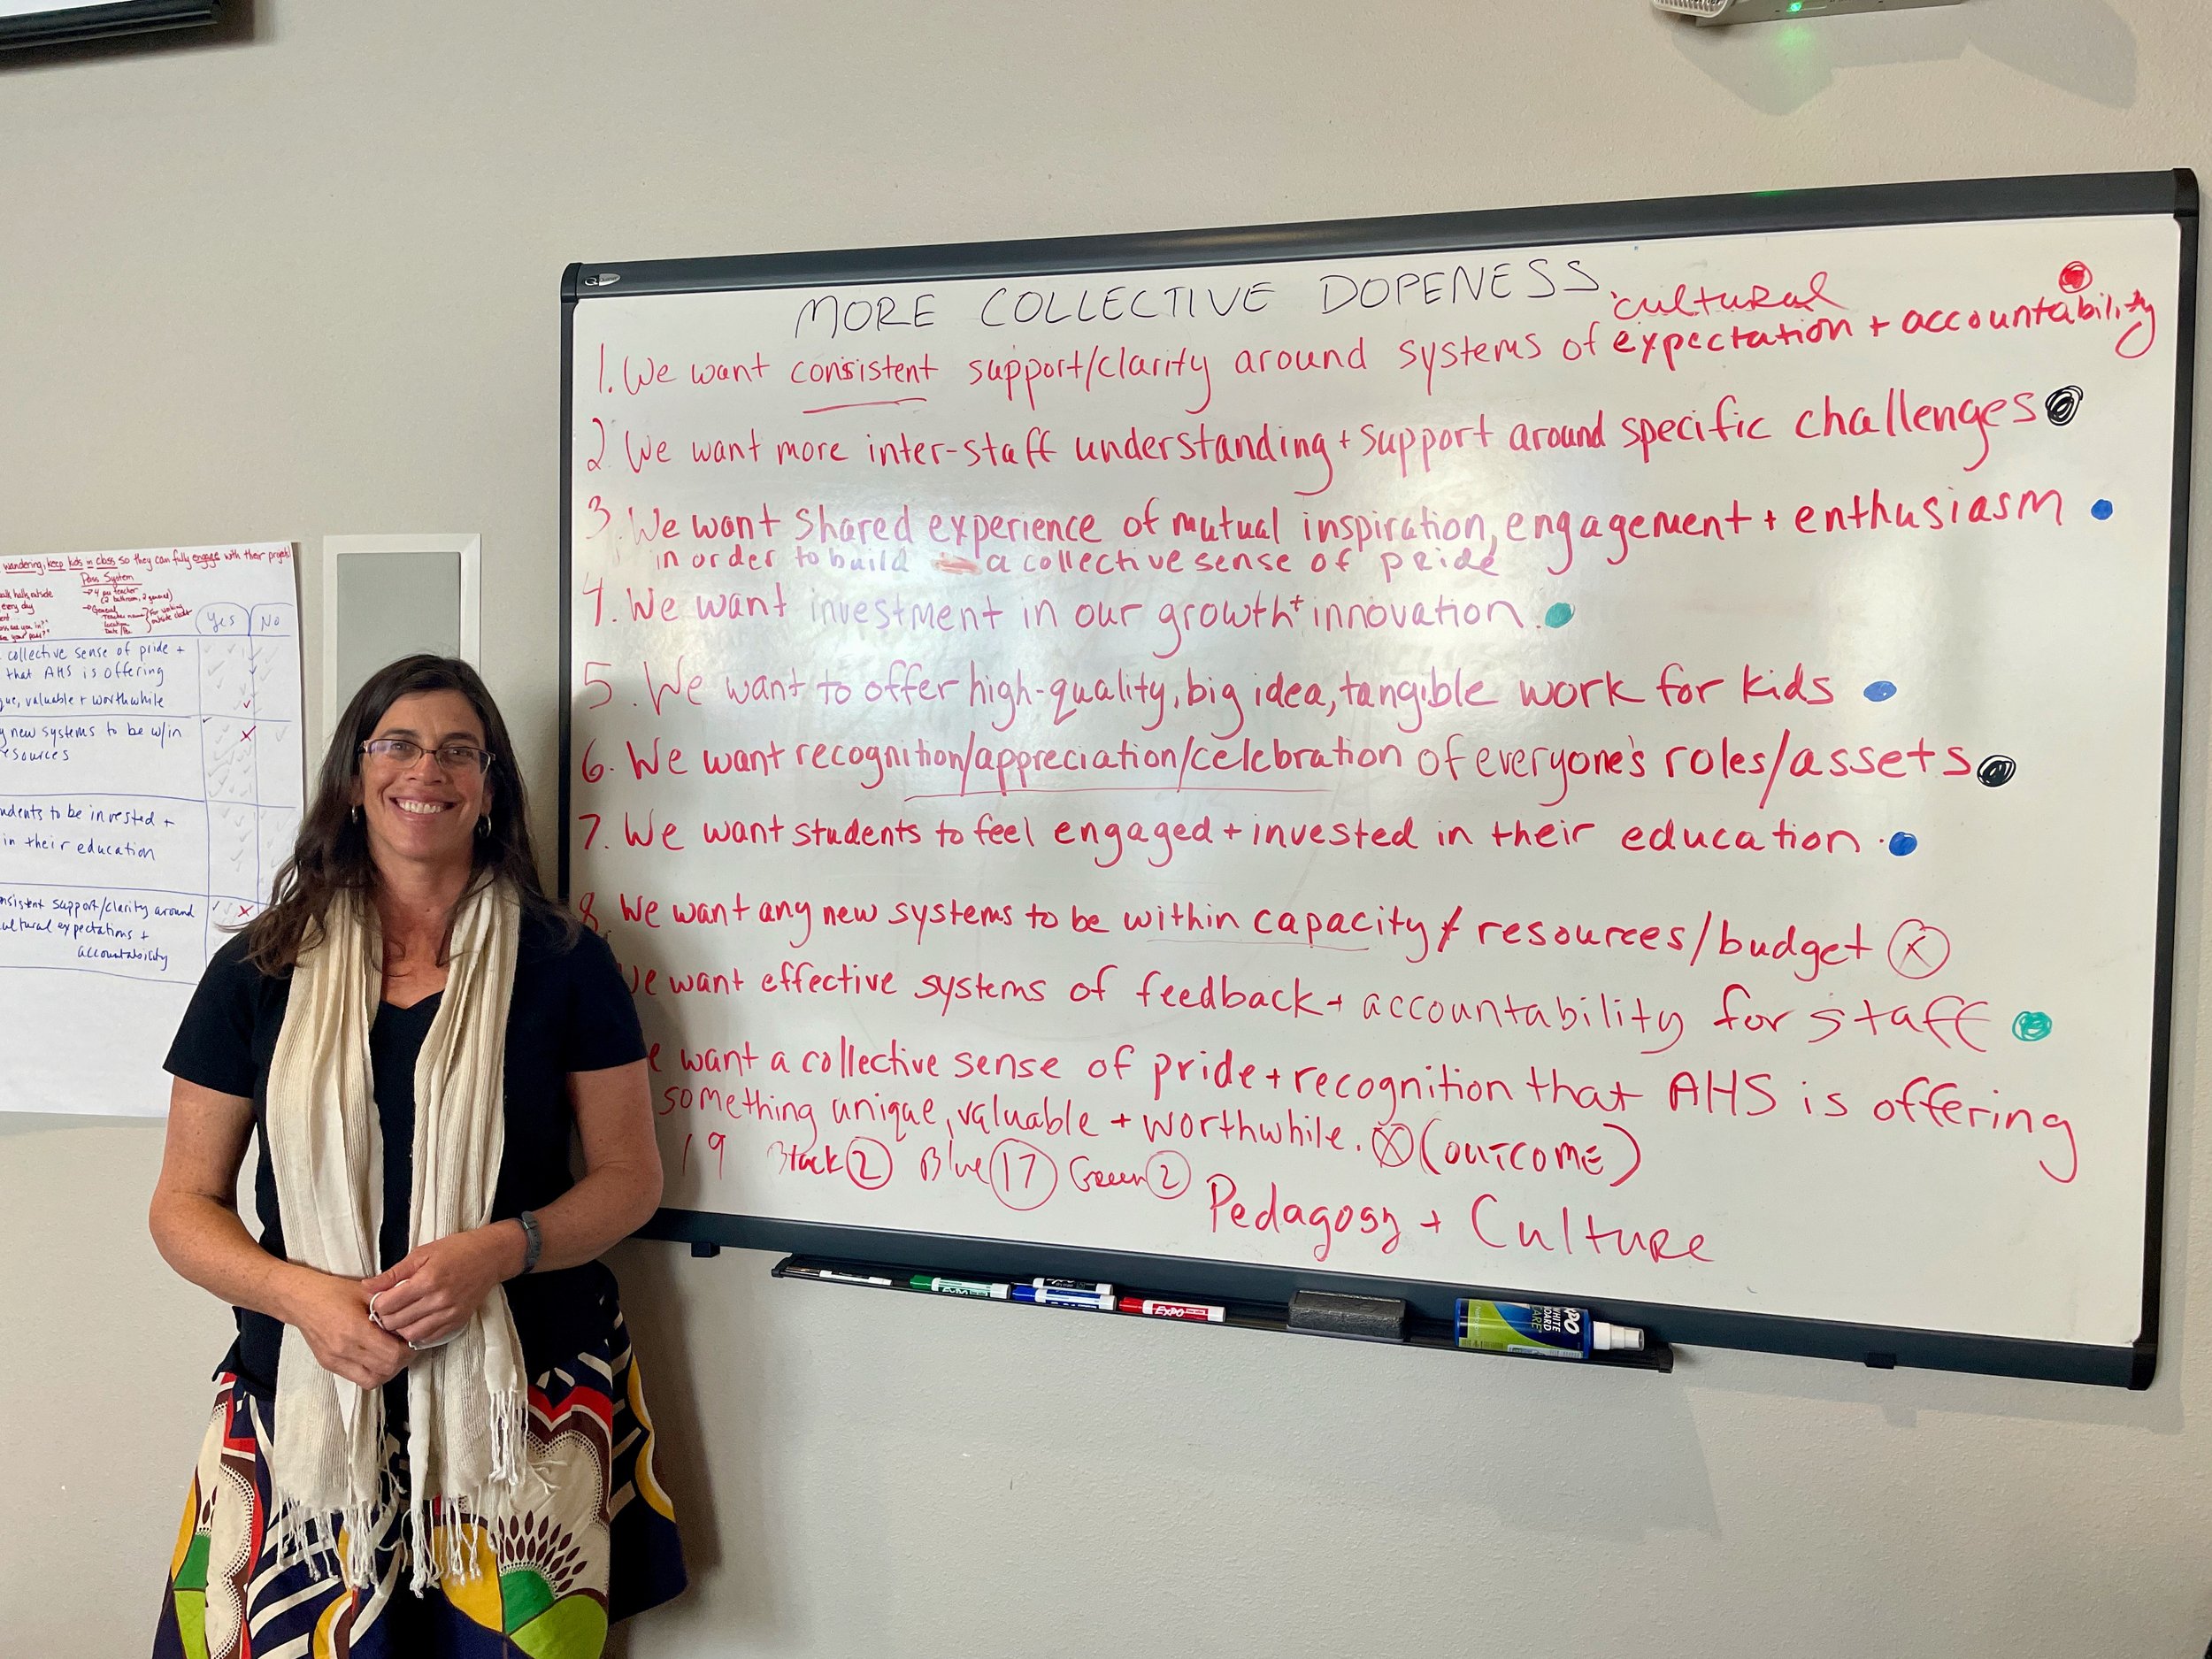 MORE COLLECTIVE DOPENESS
cultural
1. We want consistent support/clarity around systems of expectation + accountability
2. We want more inter-staff understanding + support around specific challenges
3. We want shared experience of mutual inspiration, engagement + enthusiasm
in order to build a collective sense of pride
4. We want investment in our growth + innovation.
5. We want to offer high-quality, big idea, tangible work for kids
6. We want recognition/appreciation/celebration of everyone's roles/assets
7. We want students to feel engaged + invested in their education.
8. We want any new systems to be within capacity / resources/budget X
We want effective systems of feedback + accountability for staff
want a collective sense of pride + recognition that AHS is offering
something unique, valuable + worthwhile. X (OUTCOME)
19 Black 2 Blue 17 Green 2
Pedagogy + Culture
wandering, keep kids in class so they can fully engage with their projects
Pass System
→ 4 per teacher
(2 bathroom, 2 general)
every day
Yes No
collective sense of pride +
that AHS is offering
valuable + worthwhile
new systems to be w/in
to be invested +
in their education
support/clarity around
expectations +
accountability
EXPO
EXPO